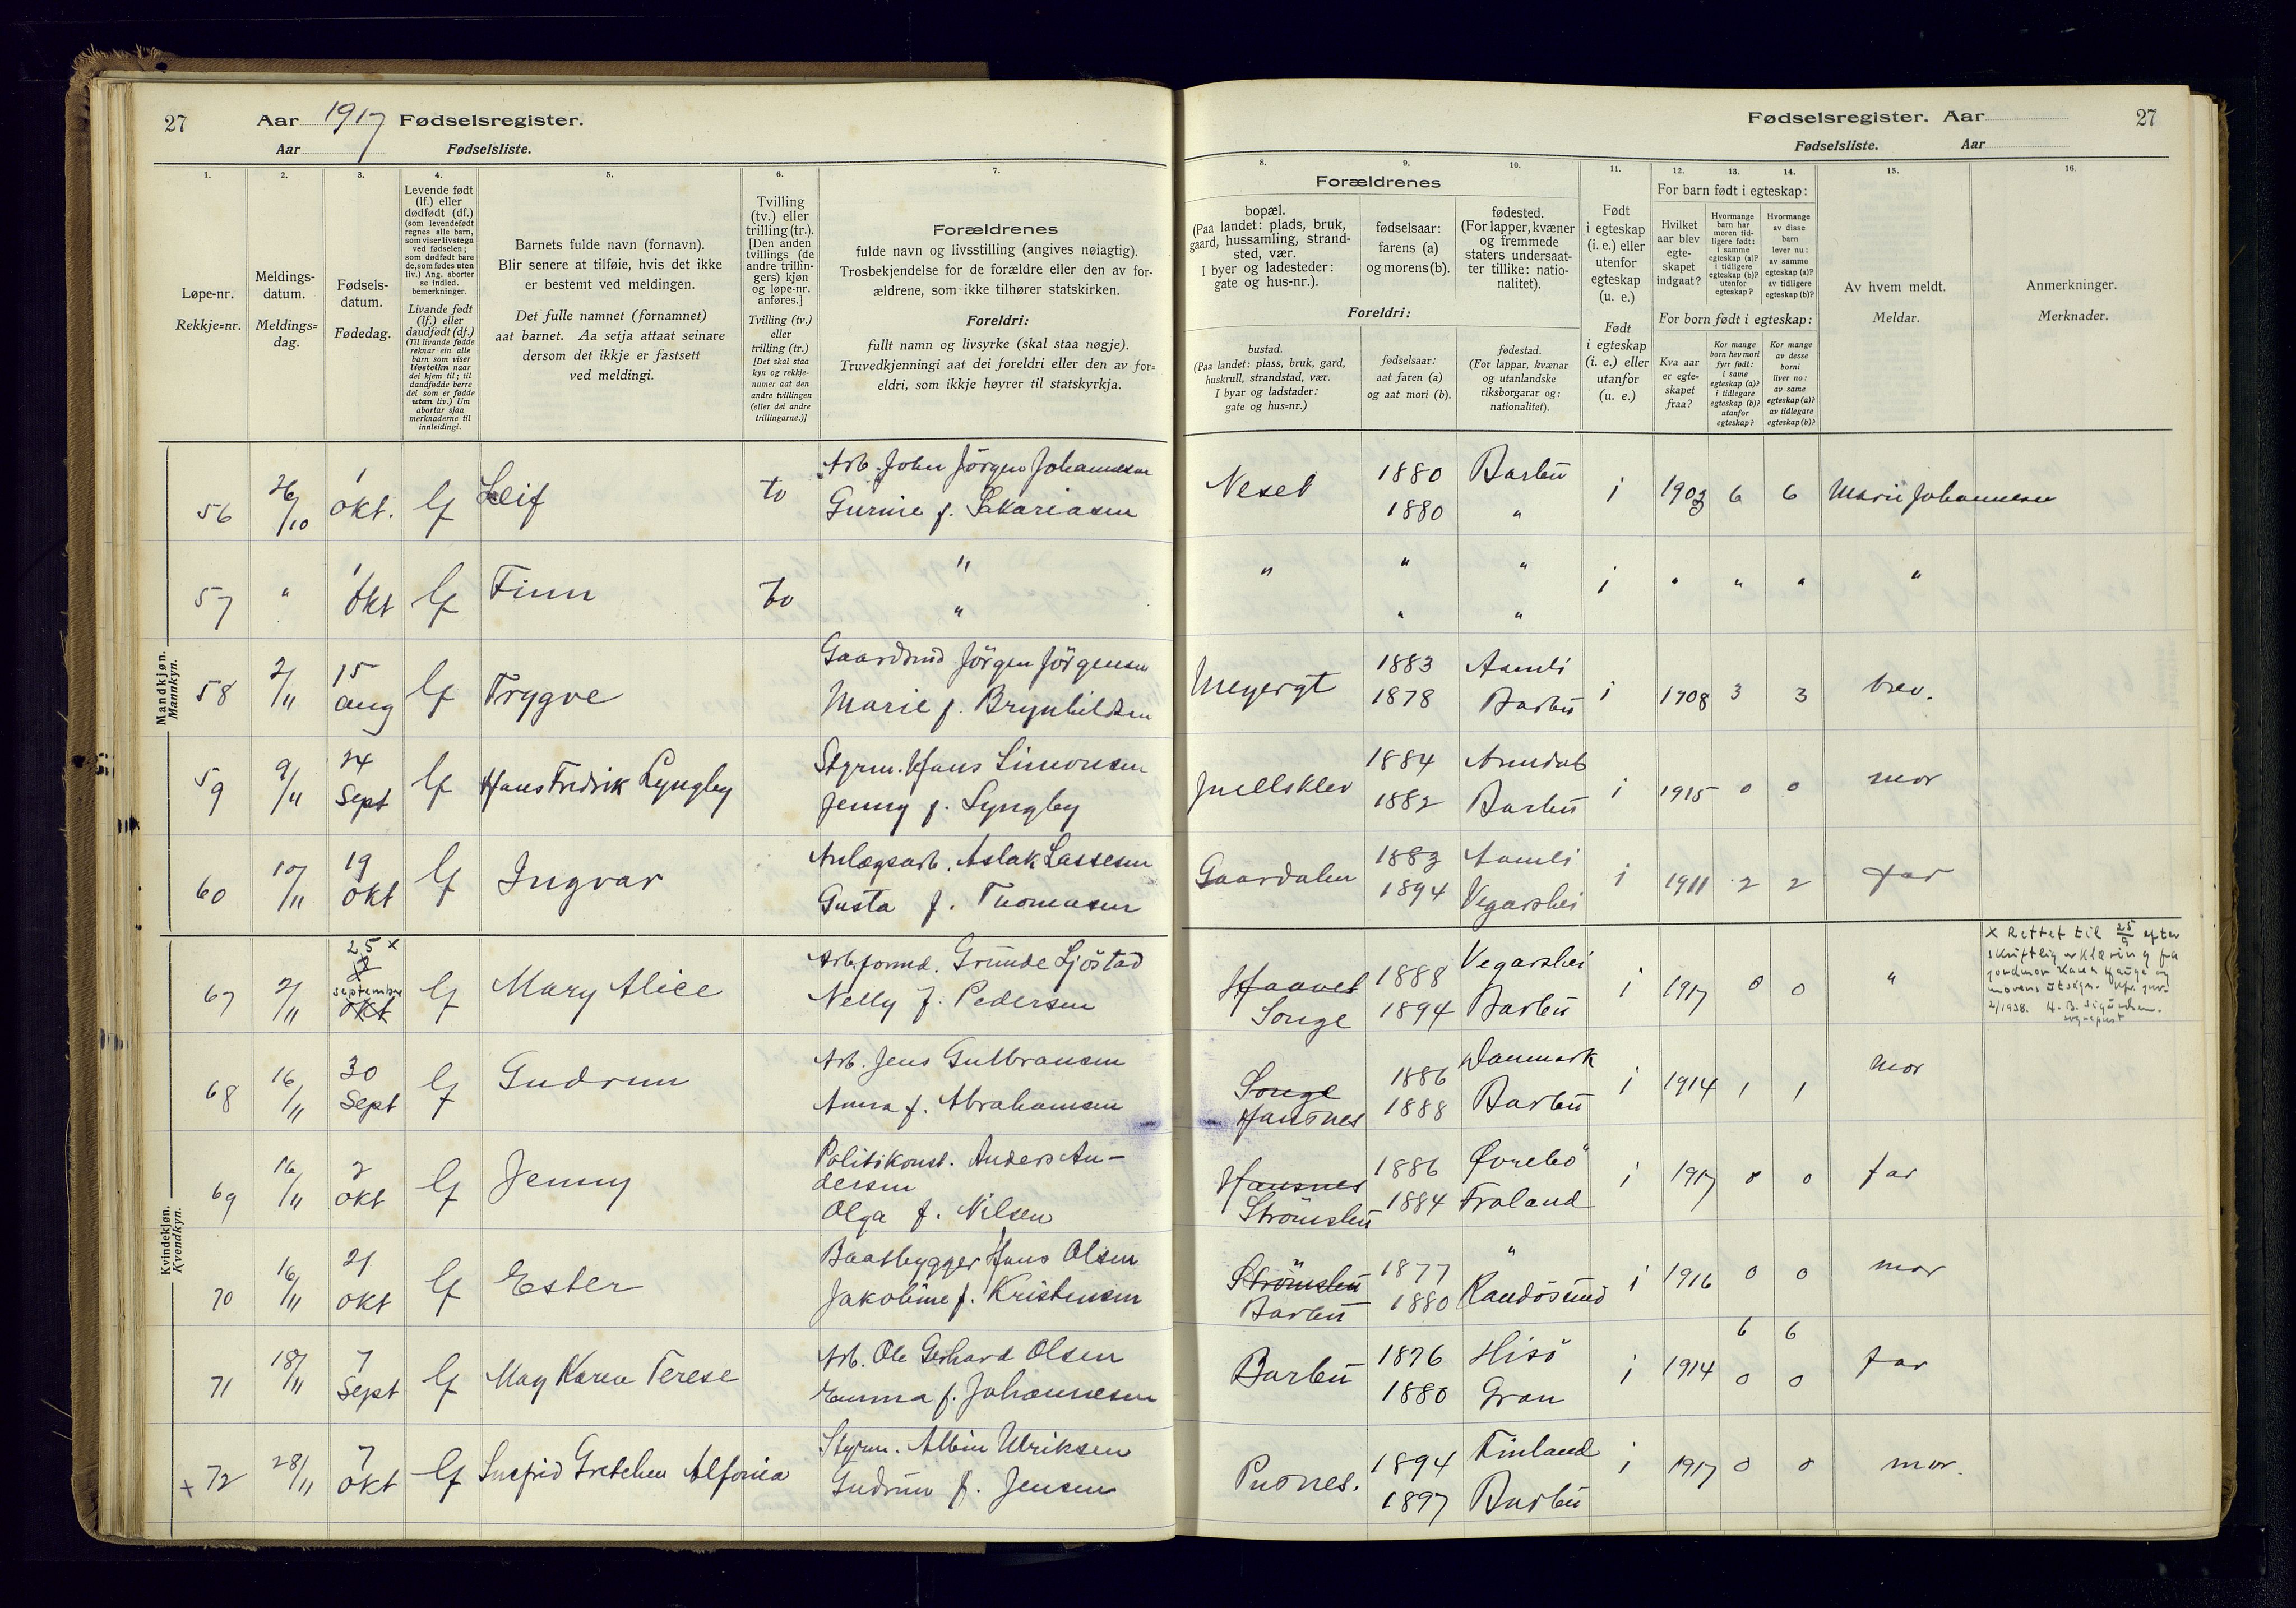 27 Aar 1917 Fødselsregister.
Aar Fødselsliste.
1.
Løpe-nr.
Rekkje=nr.
2.
Meldings-
datum.
Meldings=
dag.
3.
Fødsels-
datum.
Fødedag.
4.
Levende født
(lf.) eller
dødfødt (df.)
(som levendefødt
regnes alle barn,
som viser livstegn
ved fødselen;
som dødfødt bare
de, som fødes uten
liv.) Ang. aborter
se indled.
bemerkninger.
Livande født
(lf.) eller
daudfødt (df.)
(Til livande fødde
reknar ein alle
barn som viser
livsteikn naar
dei kjem til; til
daudfødde berre
dei som er fødde
utan liv.) Um
abortar sjaa
merknaderne til
innleidingi.
5.
Barnets fulde navn (fornavn).
Blir senere at tilføie, hvis det ikke
er bestemt ved meldingen.
Det fulle namnet (fornamnet)
aat barnet. Aa setja attaat seinare
dersom det ikkje er fastsett
ved meldingi.
6.
Tvilling
(tv.) eller
trilling (tr.).
[Den anden
tvillings (de
andre trillin-
gers) kjøn
og løpe-nr.
anføres.]
Tvilling (tv.)
eller
trilling (tr.)
[Det skal staa
kyn og rekkje-
numer aat den
andre tvillingen
(eller dei andre
trillingarne.)]
7.
Forældrenes
fulde navn og livsstilling (angives nøiagtig).
Trosbekjendelse for de forældre eller den av for-
ældrene, som ikke tilhører statskirken.
Foreldri:
fullt namn og livsyrke (skal staa nøgje).
Truvedkjenningi aat dei foreldri eller den av for=
eldri, som ikkje høyrer til statskyrkja.
Mandkjøn.
Mannkyn.
56 26/10 1 okt. lf Leif tv Arb. John Jörgen Johannesen
Gurine f. Sakariasen
57 " 1 okt lf Finn tv "
"
58 2/11 15 aug lf Trygve Gaardbrud Jörgen Jörgensen
Marie f. Brynhildsen
59 9/11 24 Sept lf Hans Fredrik Lyngby Styrm. Hans Simonsen
Jenny f. Lyngby
60 10/11 19 okt lf Ingvar Anlægsarb. Aslak Lassesen
Gusta f. Thomasen
Kvindekjøn.
Kvendkyn.
67 2/11 25 x 2 september okt lf Mary Alice Arb.formd. Grunde Ljöstad
Nelly f. Pedersen
68 16/11 30 Sept lf Gudrun Arb. Jens Gulbransen
Anna f. Abrahamsen
69 16/11 2 okt lf Jenny Politikonst. Anders An-
dersen
Olga f. Nilsen
70 16/11 21 okt lf Ester Baatbygger Hans Olsen
Jakobine f. Kristensen
71 18/11 7 Sept lf May Karen Terese Arb. Ole Gerhard Olsen
Emma f. Johannesen
x 72 28/11 7 okt lf Gretchen Alfonia Styrm. Albin Ulriksen
Gudrun f. Jensen
Fødselsregister. Aar 27
Fødselsliste. Aar
Forældrenes
8.
bopæl.
(Paa landet: plads, bruk,
gaard, hussamling, strand-
sted, vær.
I byer og ladesteder:
gate og hus-nr.).
9.
fødselsaar:
farens (a)
og morens (b).
10.
fødested.
(For lapper, kvæner
og fremmede
staters undersaat-
ter tillike: natio-
nalitet).
Foreldri:
bustad.
(Paa landet: plass, bruk, gard,
huskrull, strandstad, vær.
I byar og ladstader:
gate og hus=nr.)
fødselsaar:
aat faren (a)
og aat mori (b).
fødestad.
(For lappar, kvænar
og utanlandske
riksborgarar og:
nationalitet).
11.
Født
i egteskap
(i. e.) eller
utenfor
egteskap
(u. e.)
Født
i egteskap
(i. e.) eller
utanfor
(u. e.)
12. 13. 14.
For barn født i egteskap:
Hvilket
aar blev
egte-
skapet
indgaat?
Hvormange
barn har
moren tid-
ligere født:
i samme
egteskap (a)?
i tidligere
egteskap (b)?
utenfor
egteskap?
Hvormange
av disse
barn
lever nu:
av samme
egteskap (a)?
av tidligere
egteskap (b)?
For born født i egteskap:
Kva aar
er egte=
skapet
fraa?
Kor mange
born hev mori
fyrr født:
i same
egteskap (a)?
i tidlegare
egteskap (b)?
utanfor
egteskap?
Kor mange
av desse
borni
liver no:
av same
egteskap (a)?
av tidlegare
egteskap (b)?
15.
Av hvem meldt.
Meldar.
16.
Anmerkninger.
Merknader.
Neset 1880 Barbu i 1903 6 6 Marie Johannesen
1880 "
" " " i " " " "
" "
Meyergt 1883 Aamli i 1908 3 3 brev.
1878 Barbu
Juellsklev 1884 Arendal i 1915 0 0 mor
1882 Barbu
Gaardalen 1883 Aamli i 1911 2 2 far
1894 Vegarshei
Haavet 1888 Vegarshei i 1917 0 0 "
Songe 1894 Barbu
x Rettet til 25/9 efter
skriftlig erklæring fra
jordmor Karen Hauge og
morens utsagn.
2/1938. H. B. Sigurdsen.
sogneprest
Songe 1886 Danmark i 1914 1 1 mor
Hausnes 1888 Barbu
Hausnes 1886 Øvrebö i 1917 0 0 far
Strömsbu 1884 Froland
Strömsbu 1877 " i 1916 0 0 mor
Barbu 1880 Randösund
Barbu 1876 Hisö i 1914 6 6 far
1880 Gran 0 0
Pusnes. 1894 Finland i 1917 0 0 mor.
1897 Barbu